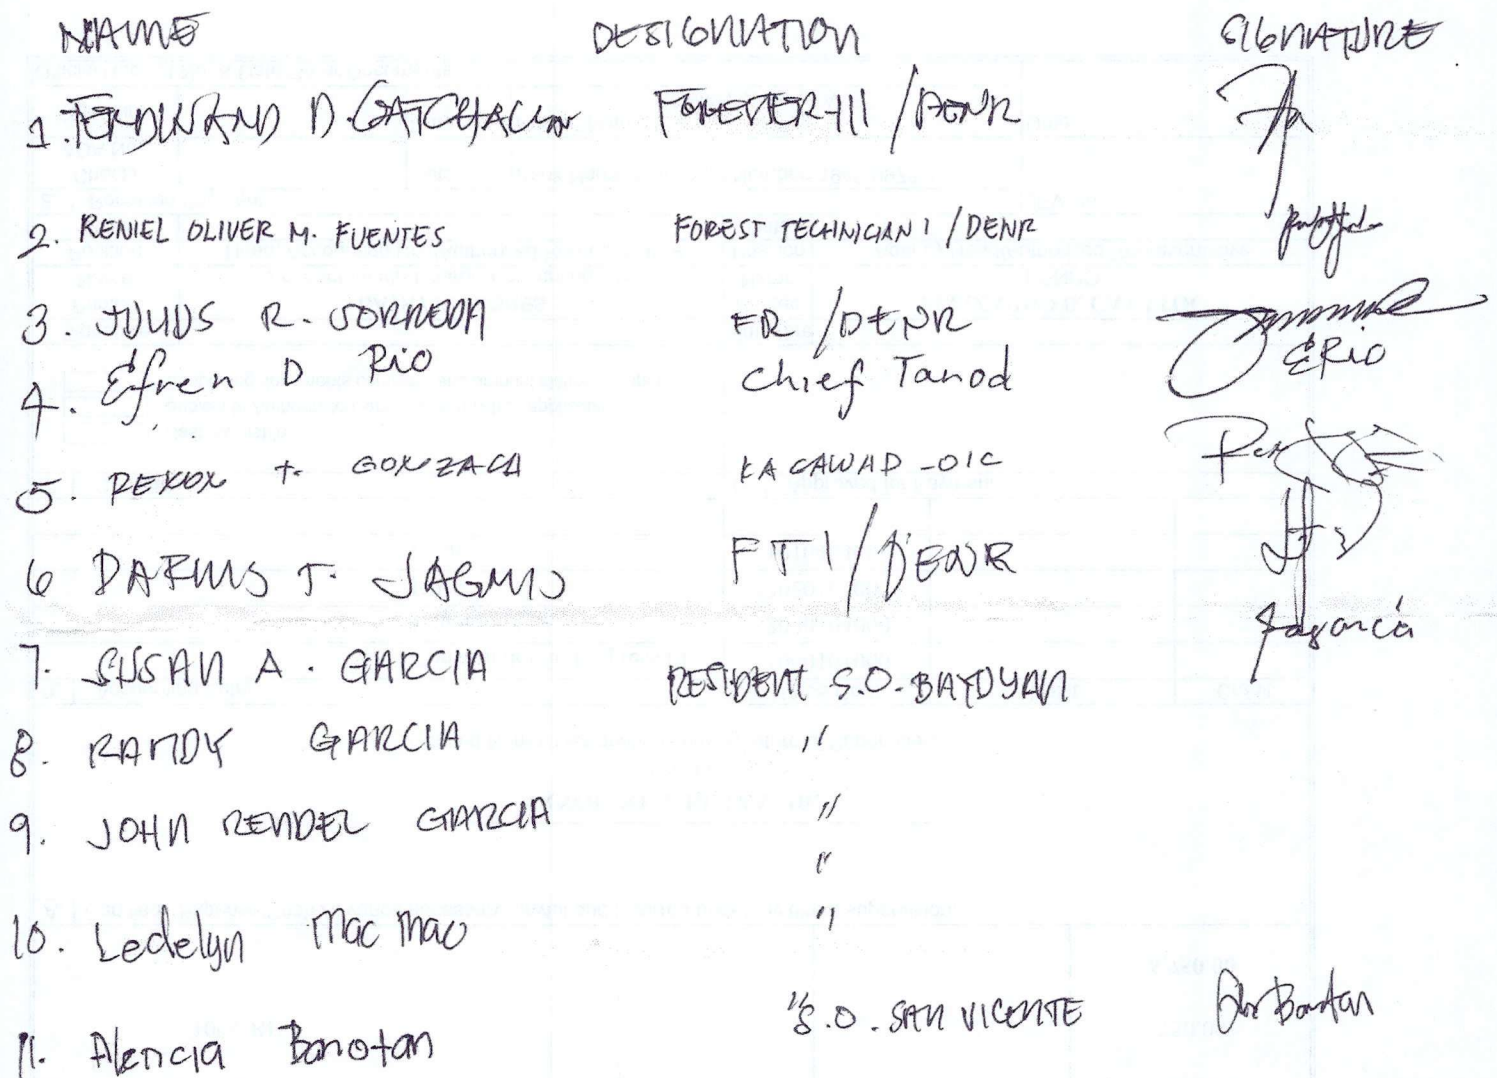 NAME DESIGNATION SIGNATURE
1. FERDINAND D. GATCHALIAN FORESTER III / DENR
2. RENIEL OLIVER M. FUENTES FOREST TECHNICIAN I / DENR
3. R. SORREDA FR / DENR
4. Efren D Rio Chief Tanod ERio
5. T. GONZAGA KAGAWAD - OIC
6 DARIUS T. FT I / DENR
7. SUSAN A. GARCIA RESIDENT S.O. BAYUYAN Sagarcia
8. RANDY GARCIA "
9. JOHN RENDEL GARCIA "
"
10. Ledelyn Mac Mac "
" S.O. SAN VICENTE
11. Alencia Banotan